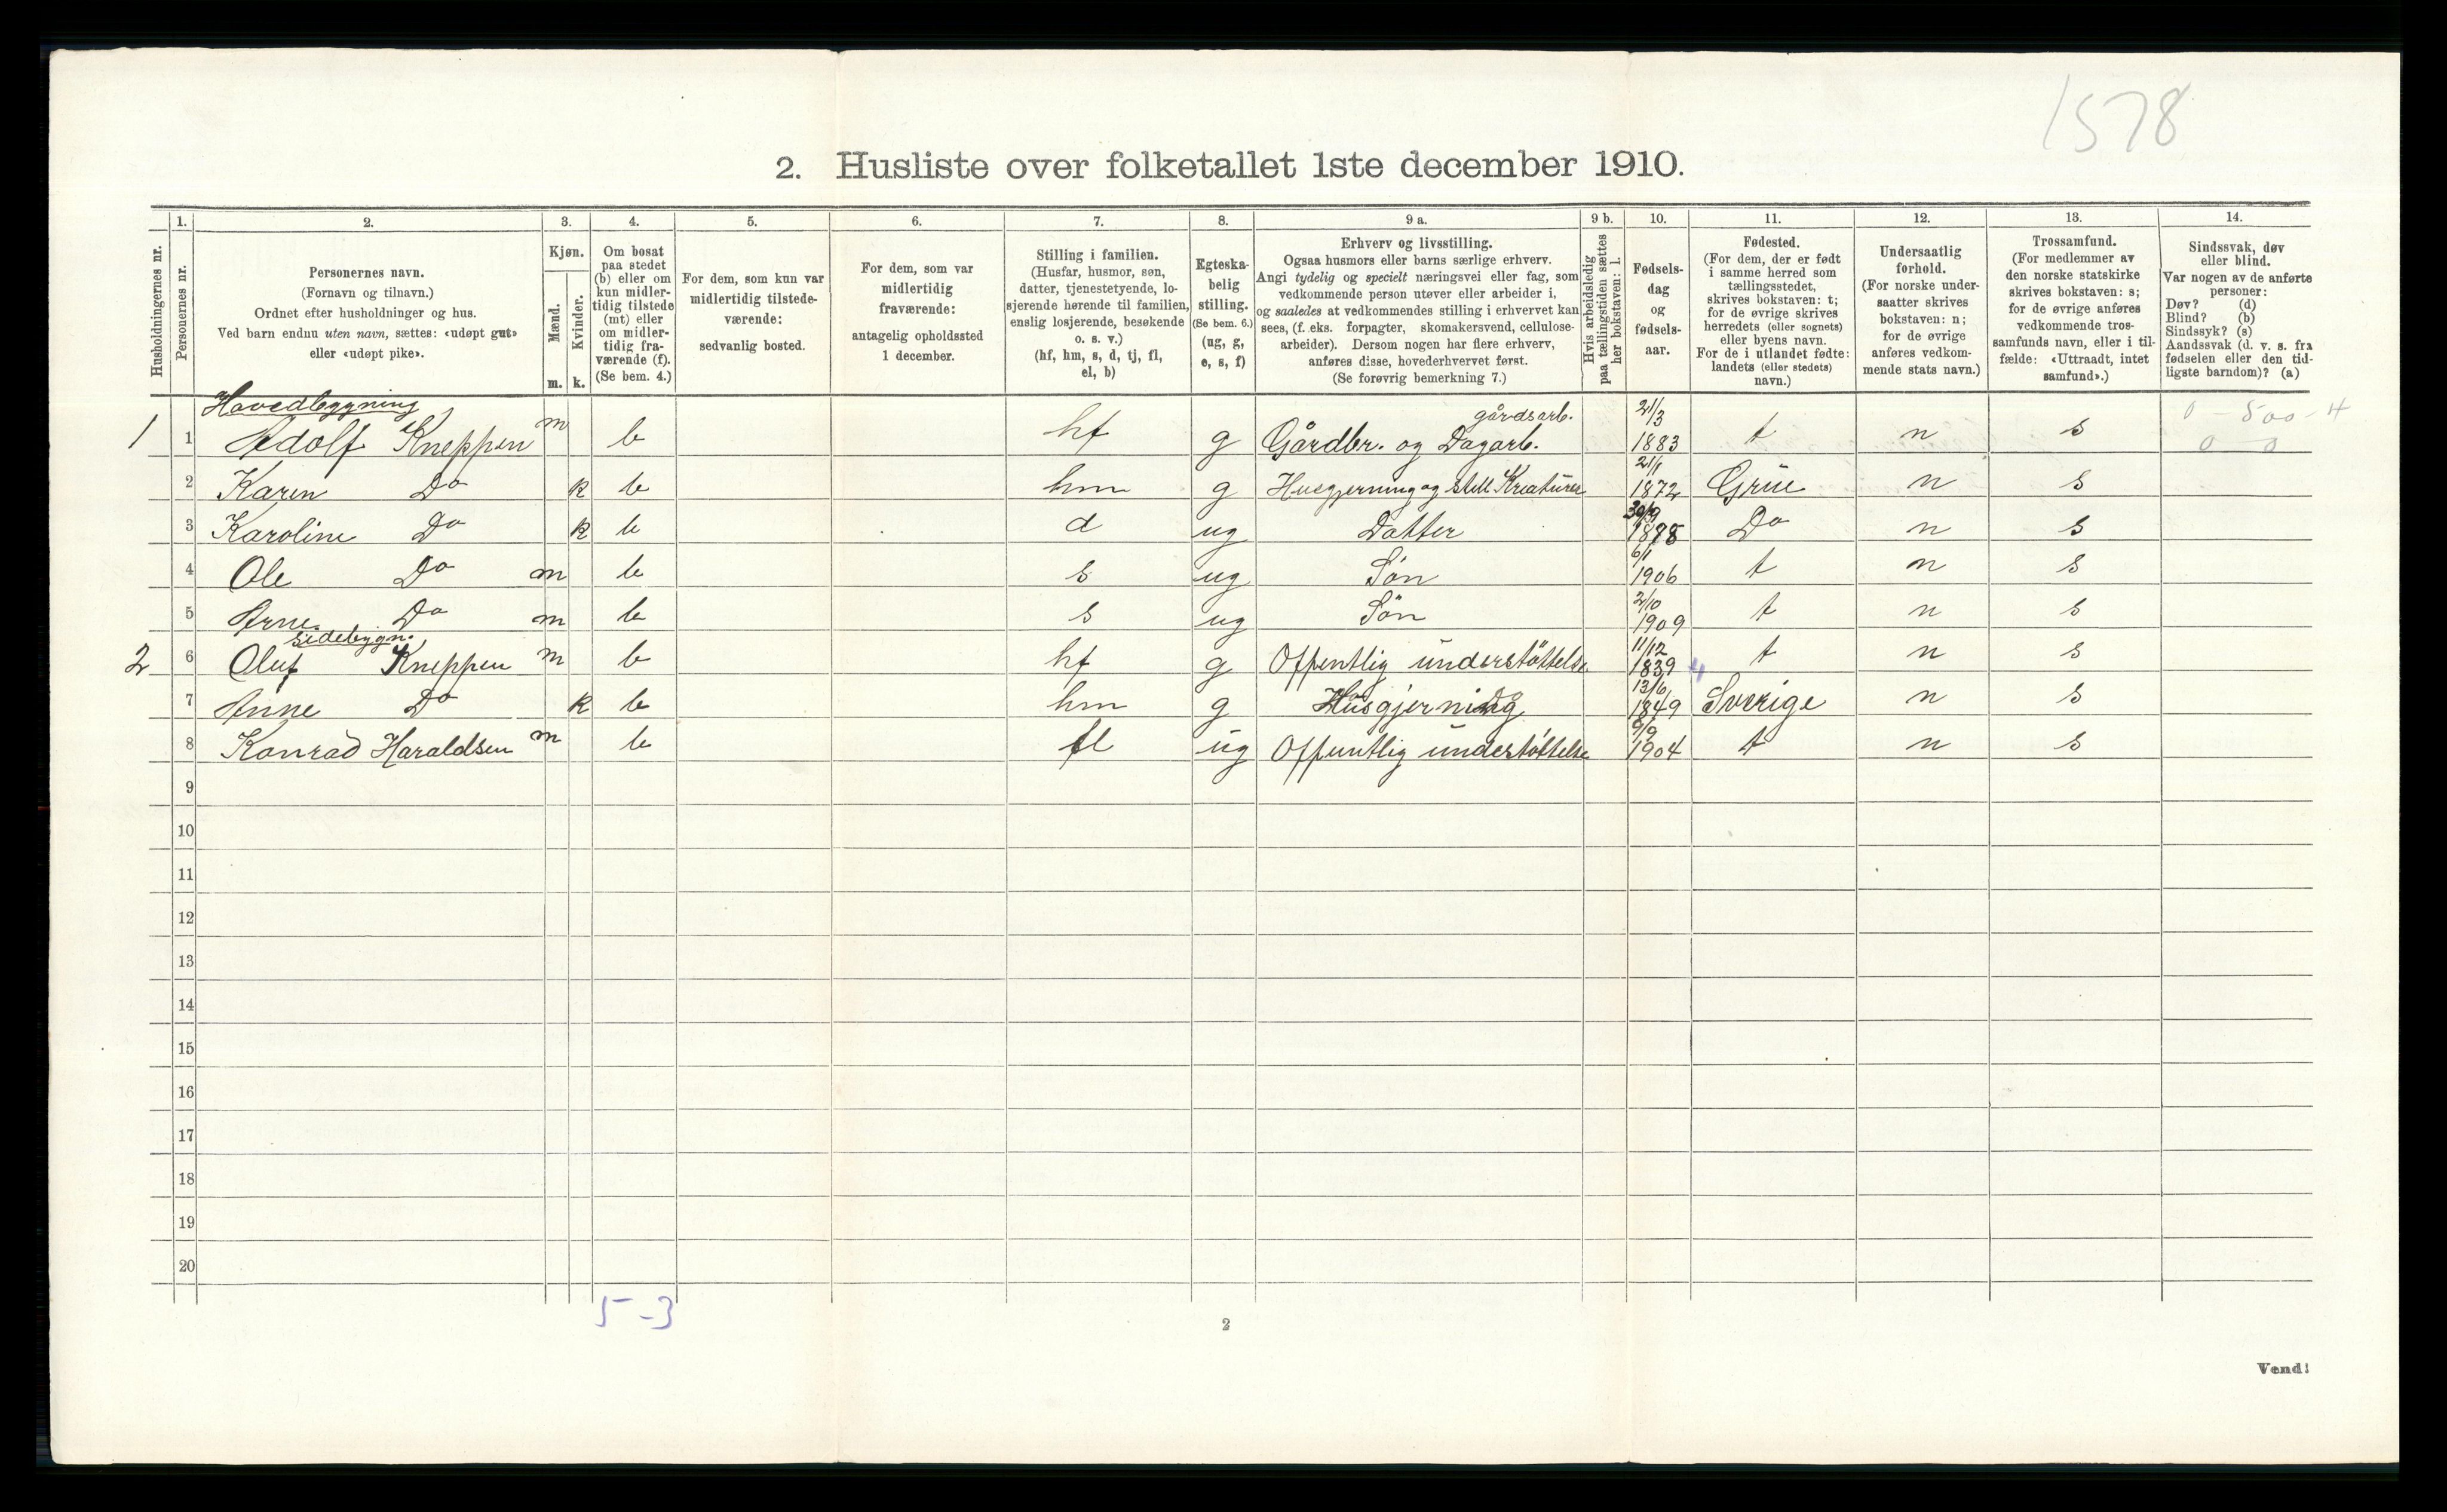 1578
2. Husliste over folketallet 1ste december 1910.
Husholdningernes nr.
1.
Personernes nr.
2.
Personernes navn.
(Fornavn og tilnavn.)
Ordnet efter husholdninger og hus.
Ved barn endnu uten navn, sættes: «udøpt gut»
eller «udøpt pike».
3.
Kjøn.
Mænd.
Kvinder.
m. k.
4.
Om bosat
paa stedet
(b) eller om
kun midler-
tidig tilstede
(mt) eller
om midler-
tidig fra-
værende (f).
(Se bem. 4.)
5.
For dem, som kun var
midlertidig tilstede-
værende:
sedvanlig bosted.
6.
For dem, som var
midlertidig
fraværende:
antagelig opholdssted
1 december.
7.
Stilling i familien.
(Husfar, husmor, søn,
datter, tjenestetyende, lo-
sjerende hørende til familien,
enslig losjerende, besøkende
o. s. v.)
(hf, hm, s, d, tj, fl,
el, b)
8.
Egteska-
belig
stilling.
(Se bem. 6.)
(ug, g,
e, s, f)
9 a.
Erhverv og livsstilling.
Ogsaa husmors eller barns særlige erhverv.
Angi tydelig og specielt næringsvei eller fag, som
vedkommende person utøver eller arbeider i,
og saaledes at vedkommendes stilling i erhvervet kan
sees, (f. eks. forpagter, skomakersvend, cellulose-
arbeider). Dersom nogen har flere erhverv,
anføres disse, hovederhvervet først.
(Se forøvrig bemerkning 7.)
9 b.
Hvis arbeidsledig
paa tællingstiden sættes
her bokstaven: l.
10.
Fødsels-
dag
og
fødsels-
aar.
11.
Fødested.
(For dem, der er født
i samme herred som
tællingsstedet,
skrives bokstaven: t;
for de øvrige skrives
herredets (eller sognets)
eller byens navn.
For de i utlandet fødte:
landets (eller stedets)
navn.)
12.
Undersaatlig
forhold.
(For norske under-
saatter skrives
bokstaven: n;
for de øvrige
anføres vedkom-
mende stats navn.)
13.
Trossamfund.
(For medlemmer av
den norske statskirke
skrives bokstaven: s;
for de øvrige anføres
vedkommende tros-
samfunds navn, eller i til-
fælde: «Uttraadt, intet
samfund».)
14.
Sindssvak, døv
eller blind.
Var nogen av de anførte
personer:
Døv? (d)
Blind? (b)
Sindssyk? (s)
Aandssvak (d. v. s. fra
fødselen eller den tid-
ligste barndom)? (a)
Hovedbygning
1 1 Adolf Kneppen m b hf g Gårdbr. og Dagarb. gårdsarb. 21/3 1883 t n s 0 500-4
0 0
2 Karen Do k b hm g Husgjerning og stell Kreaturer 21/1 1872 Grue n s
3 Karoline Do k b d ug Datter 1898 Do n s
4 Ole Do m b s ug Søn 6/1 1906 t n s
5 Arne Do m b s ug Søn 2/10 1909 t n s
sidebygn.
2 6 Oluf Kneppen m b hf g Offentlig understöttelse 11/12 1839 4 t n s
7 Anne Do k b hm g Husgjerning 13/6 1849 Sverige n s
8 Konrad Haraldsen m b fl ug Offentlig understöttelse 9/9 1904 t n s
9
10
11
12
13
14
15
16
17
18
19
20
5-3
2
Vend!